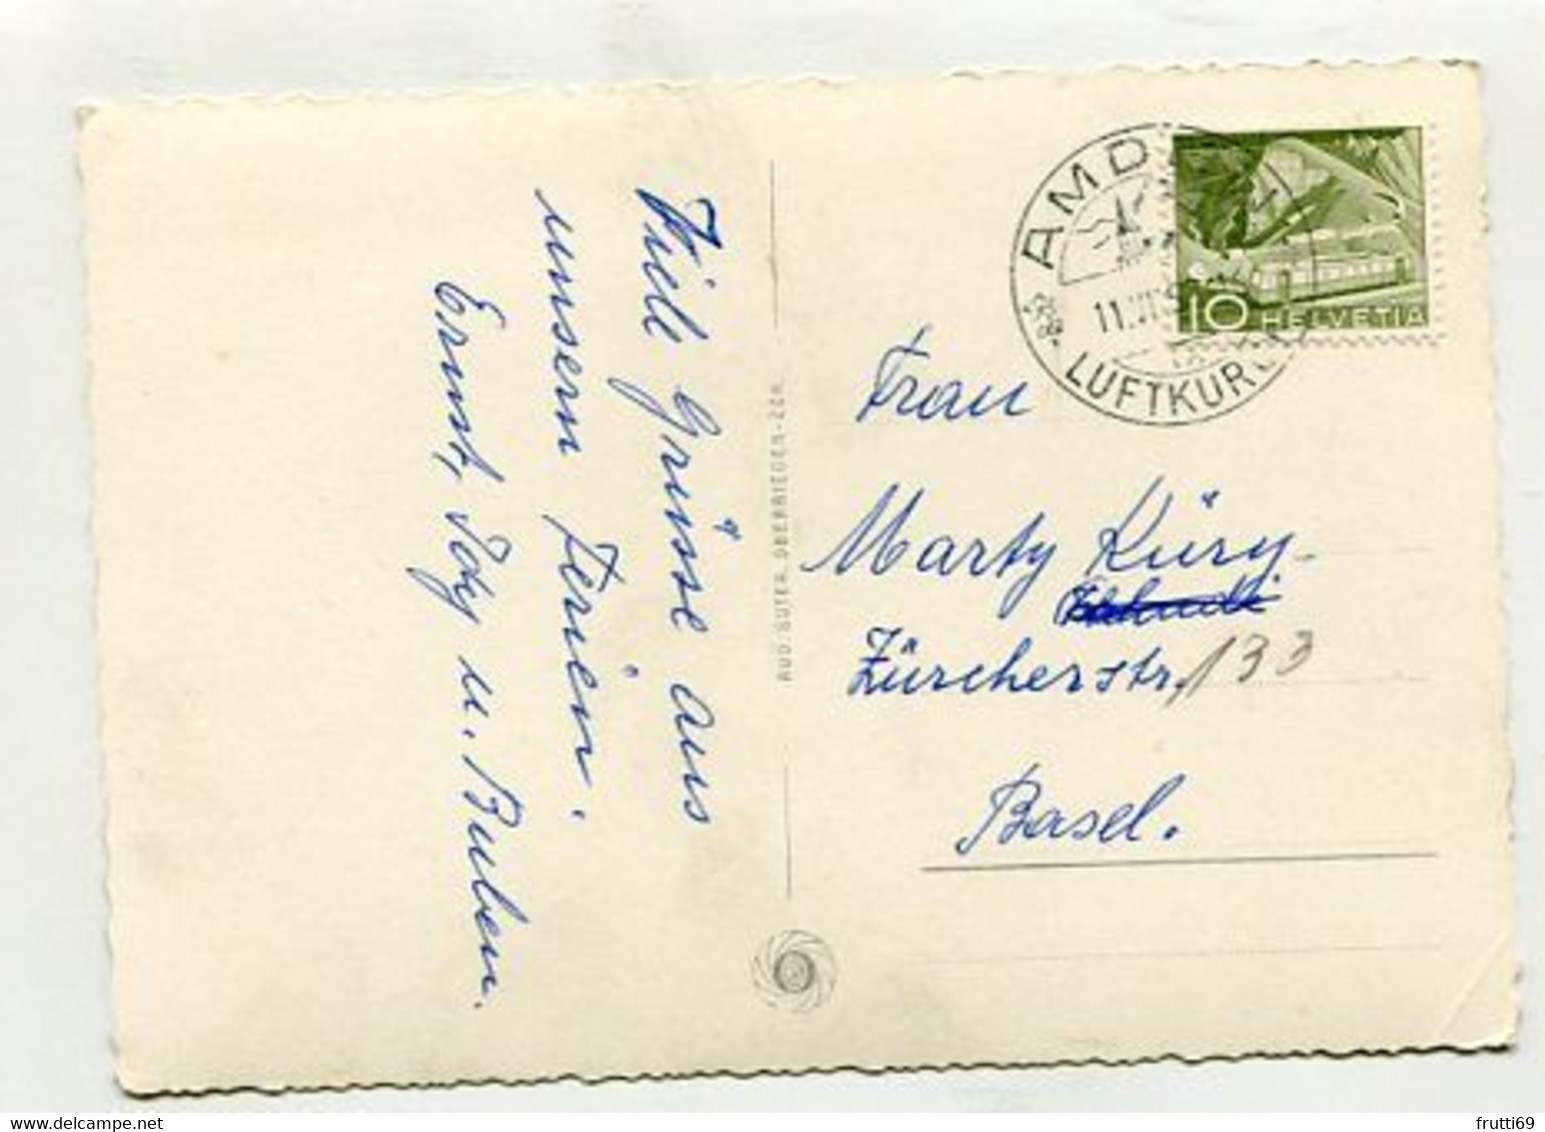 Viele Grüsse aus
unsern Ferien.
Ernst, u. Buben.
RUD. SUTER, OBERRIEDEN-ZCH.
AMD
11.VII
LUFTKUR
10 HELVETIA
Frau
Marty Küry-
Zürcherstr. 133
Basel.
frutti69